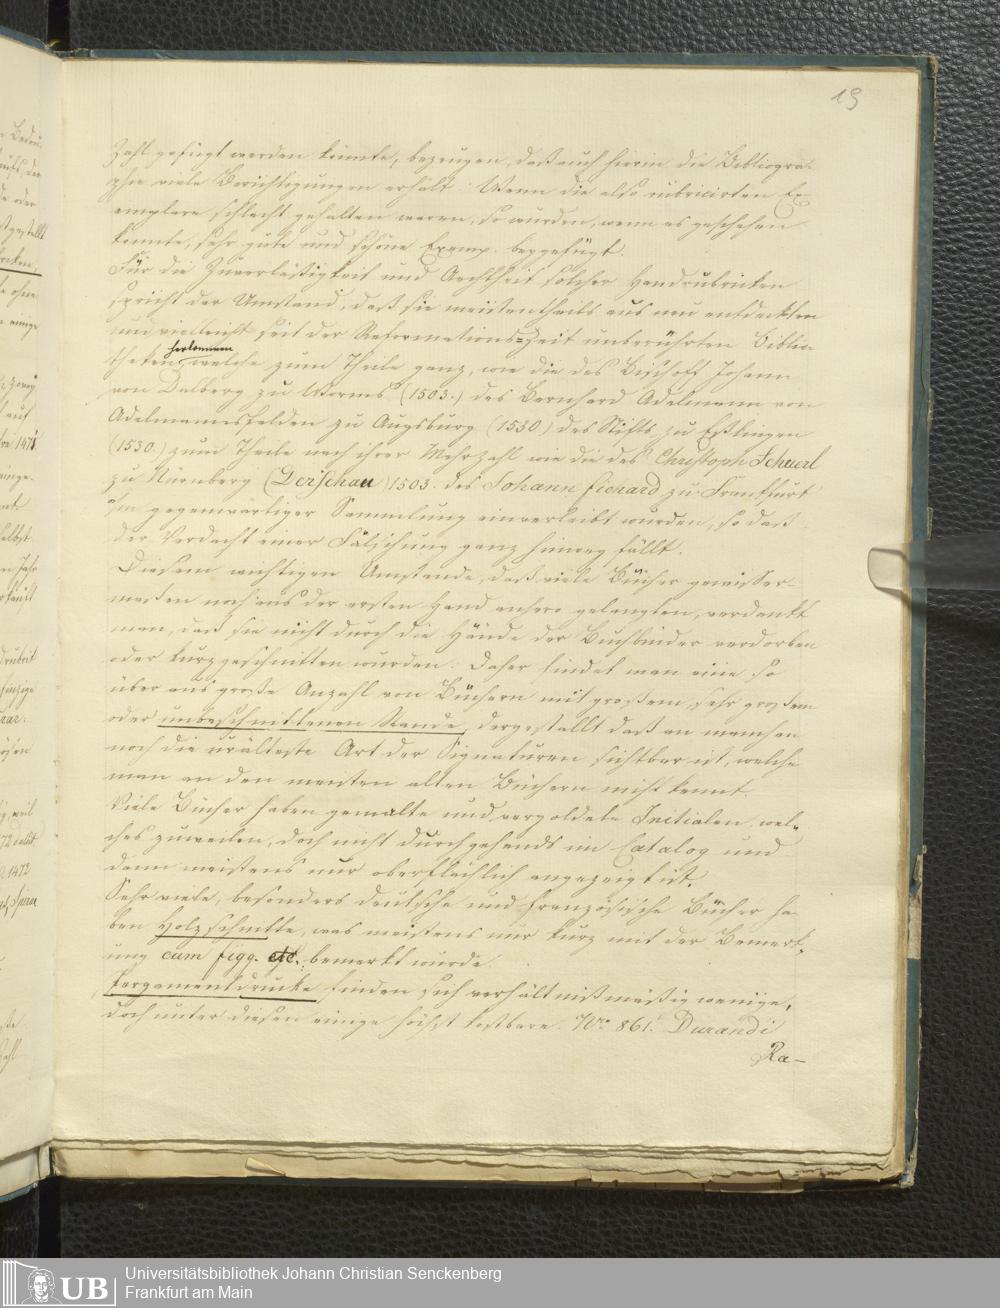 19
Zahl gefügt werden könnte, bezeugen, daß auch hierin die Bibliogra-
phie viele Berichtigungen erhält. Wenn die also rubricirten Ex-
emplare schlecht gehalten waren, so wurden, wenn es geschehen
konnte, sehr gute und schöne Exemp. beygefügt.
Für die Zuverläßigkeit und Aechtheit solcher Handrubricken
spricht der Umstand, daß sie meistentheils aus neu entdeckten
und vielleicht seit der Reformations-Zeit unberührten Biblio-
herkommen
theken, welche zum Theile ganz, wie die des Bischoff Johann
von Dalberg zu Worms (1503.) des Bernhard Adelmann von
Adelmannsfelden zu Augsburg (1530.) des Stifts zu Eßlingen
(1530.) zum Theile nach ihrer Mehrzahl wie die des Christoph Scheurl
zu Nürnberg (Derschau) 1503. des Johann Fichard zu Frankfurt
in gegenwärtiger Sammlung einverleibt wurden, so daß
der Verdacht einer Fälschung ganz hinweg fällt.
Diesem wichtigen Umstande, daß viele Bücher gewisser-
maßen noch aus der ersten Hand anhero gelangten, verdankt
man, daß sie nicht durch die Hände der Buchbinder verdorben
oder kurz geschnitten wurden: Daher findet man eine so
über aus große Anzahl von Büchern mit großem, sehr großem
oder unbeschnittenen Rande, dergestallt daß an manchen
noch die urälteste Art der Signaturen sichtbar ist, welche
man an den meisten alten Büchern nicht kennt.
Viele Bücher haben gemalte und vergoldete Initialen, wel-
ches zuweilen, doch nicht durchgehends im Catalog und
dann meistens nur oberflächlich angezeigt ist.
Sehr viele, besonders deutsche und französische Bücher ha-
ben Holzschnitte, was meistens nur kurz mit der Bemerk-
ung cum figg. etc. bemerkt wurde.
Pergamentdrucke finden sich verhältnißmäßig wenige,
doch unter diesen einige höchst kostbare. No. 861. Durandi
Ra-
UB
Universitätsbibliothek Johann Christian Senckenberg
Frankfurt am Main